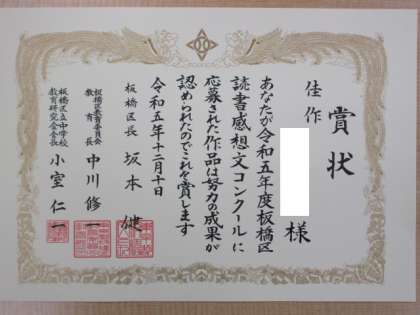 賞状
佳作
様
あなたが令和五年度板橋区
読書感想文コンクールに
応募された作品は努力の成果が
認められたのでこれを賞します
令和五年十二月十日
板橋区長 坂本 健
板橋区教育委員会
教育長 中川修一
板橋区立中学校
教育研究会会長 小室仁一